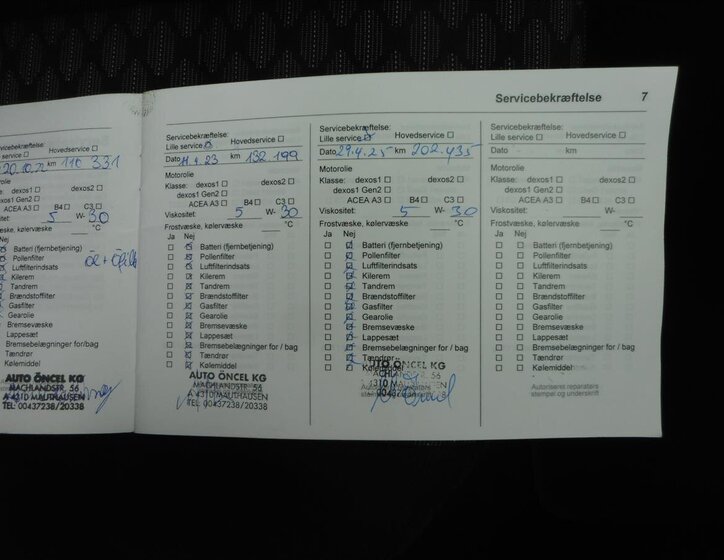 Servicebekræftelse 7
Servicebekræftelse:
service Hovedservice
20.10.22 km 110 331
dexos1 dexos2
dexos1 Gen2
ACEA A3 B4 C3
5 W- 30
Frostvæske, kølervæske °C
Nej
Batteri (fjernbetjening)
Pollenfilter
Luftfilterindsats
Kilerem
Tandrem
Brændstoffilter
Gasfilter
Gearolie
Bremsevæske
Lappesæt
Bremsebelægninger for/bag
Tændrør
Kølemiddel
AUTO ÖNCEL KG
MACHLANDSTR. 56
A 4310 MAUTHAUSEN
TEL: 00437238/20338
Servicebekræftelse:
Lille service Hovedservice
Dato km 132 199
Motorolie
Klasse: dexos1 dexos2
dexos1 Gen2
ACEA A3 B4 C3
Viskositet: 5 W- 30
Frostvæske, kølervæske °C
Ja Nej
Batteri (fjernbetjening)
Pollenfilter
Luftfilterindsats
Kilerem
Tandrem
Brændstoffilter
Gasfilter
Gearolie
Bremsevæske
Lappesæt
Bremsebelægninger for / bag
Tændrør
Kølemiddel
AUTO ÖNCEL KG
MACHLANDSTR. 56
A 4310 MAUTHAUSEN
TEL: 00437238/20338
Servicebekræftelse:
Lille service Hovedservice
Dato 29.4.25 km 202.435
Motorolie
Klasse: dexos1 dexos2
dexos1 Gen2
ACEA A3 B4 C3
Viskositet: 5 W- 30
Frostvæske, kølervæske °C
Ja Nej
Batteri (fjernbetjening)
Pollenfilter
Luftfilterindsats
Kilerem
Tandrem
Brændstoffilter
Gasfilter
Gearolie
Bremsevæske
Lappesæt
Bremsebelægninger for / bag
Tændrør
Kølemiddel
ÖNCEL KG
Servicebekræftelse:
Lille service Hovedservice
Dato km
Motorolie
Klasse: dexos1 dexos2
dexos1 Gen2
ACEA A3 B4 C3
Viskositet: W-
Frostvæske, kølervæske °C
Ja Nej
Batteri (fjernbetjening)
Pollenfilter
Luftfilterindsats
Kilerem
Tandrem
Brændstoffilter
Gasfilter
Gearolie
Bremsevæske
Lappesæt
Bremsebelægninger for / bag
Tændrør
Kølemiddel
Autoriseret reparatørs
stempel og underskrift